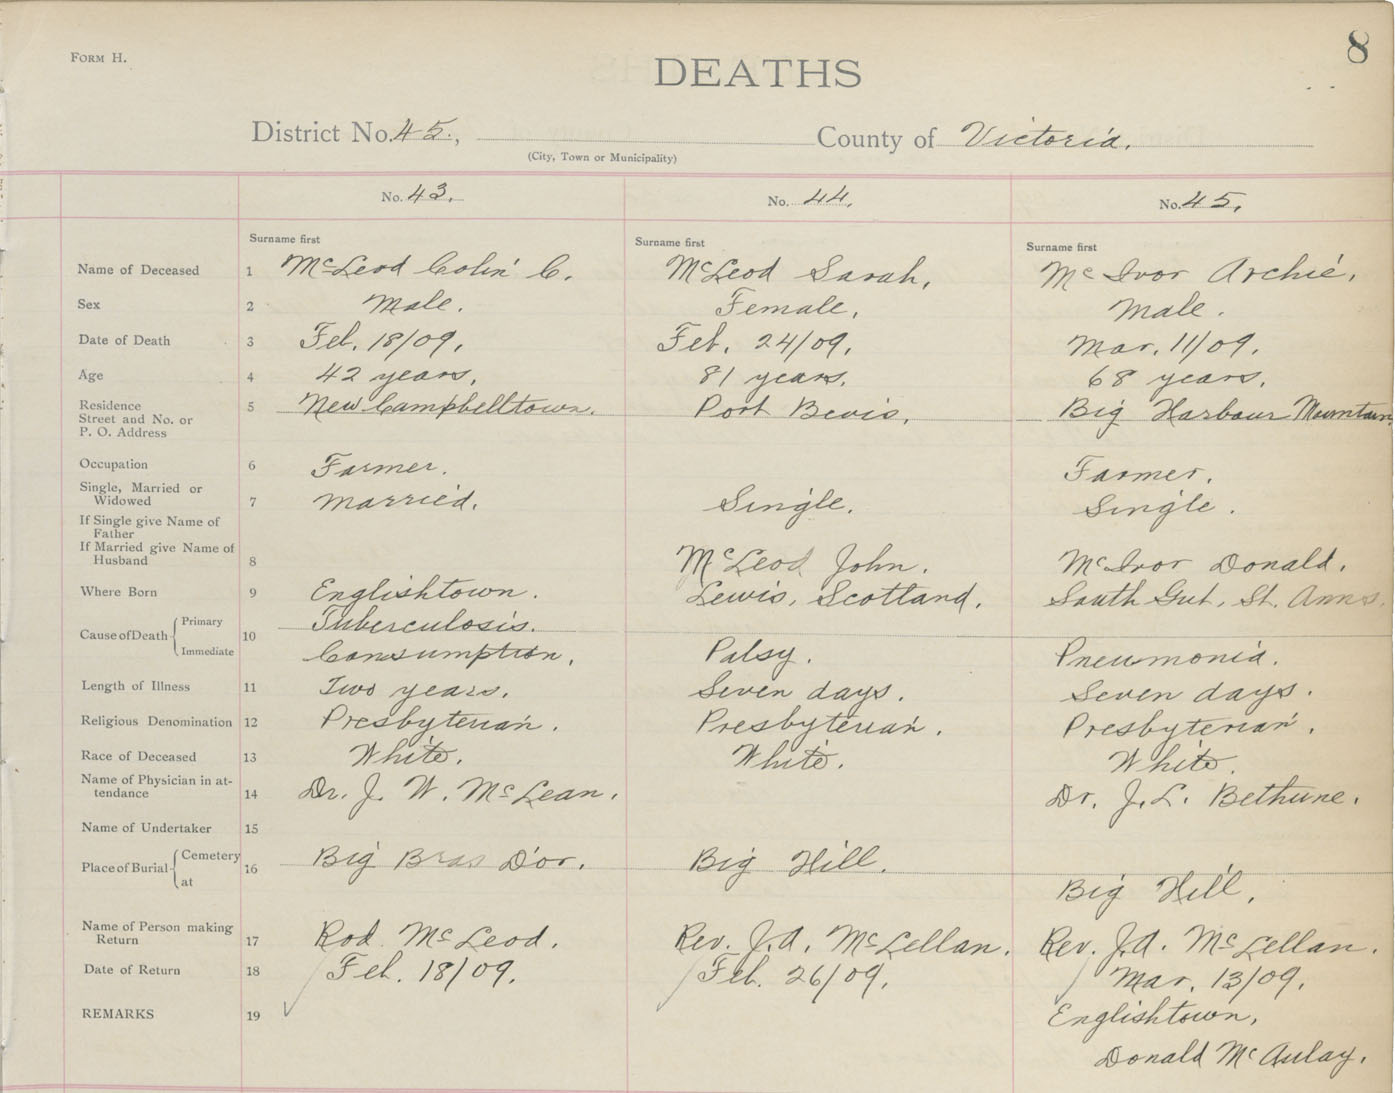 8
FORM H.
DEATHS
District No. 45., County of Victoria.
(City, Town or Municipality)
No. 43. No. 44. No. 45.
Surname first Surname first Surname first
Name of Deceased 1 McLeod Colin C. McLeod Sarah, McIvor Archie,
Sex 2 Male. Female, Male.
Date of Death 3 Feb. 18/09. Feb. 24/09. Mar. 11/09.
Age 4 42 years, 81 years, 68 years,
Residence 5 New Campbelltown. Port Bevis, Big Harbour Mountain,
Street and No. or
P. O. Address
Occupation 6 Farmer. Farmer.
Single, Married or
Widowed 7 Married. Single. Single.
If Single give Name of
Father
If Married give Name of
Husband 8 McLeod John. McIvor Donald.
Where Born 9 Englishtown. Lewis, Scotland. South Gut, St. Anns.
Cause of Death Primary 10 Tuberculosis.
Immediate Consumption, Palsy. Pneumonia.
Length of Illness 11 Two years. Seven days. Seven days.
Religious Denomination 12 Presbyterian. Presbyterian. Presbyterian.
Race of Deceased 13 White. White. White.
Name of Physician in at-
tendance 14 Dr. J. W. McLean. Dr. J. L. Bethune.
Name of Undertaker 15
Place of Burial Cemetery 16 Big Bras D'or. Big Hill.
at Big Hill.
Name of Person making
Return 17 Rod McLeod. Rev. J. A. McLellan. Rev. J. A. McLellan.
Date of Return 18 Feb. 18/09. Feb. 26/09. Mar. 13/09.
REMARKS 19 Englishtown,
Donald McAulay.